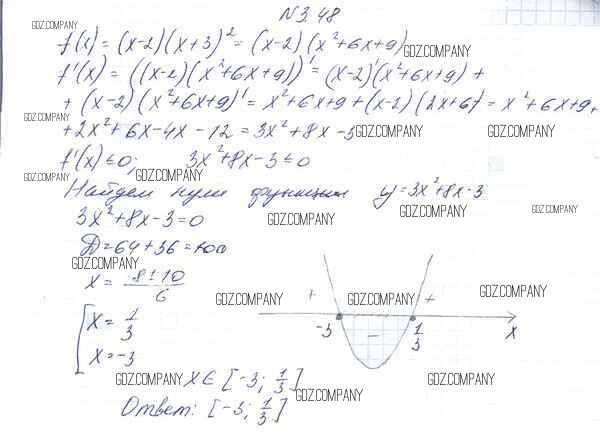 №3.48
GDZ.COMPANY
f(x) = (x-2)(x+3)² = (x-2)(x²+6x+9)
GDZ.COMPANY
f'(x) = ((x-2)(x²+6x+9))' = (x-2)'(x²+6x+9) +
GDZ.COMPANY
+ (x-2)(x²+6x+9)' = x²+6x+9+(x-2)(2x+6) = x²+6x+9+
GDZ.COMPANY
+2x²+6x-4x-12 = 3x²+8x-3
GDZ.COMPANY GDZ.COMPANY
f'(x) ≤ 0; 3x²+8x-3 ≤ 0
GDZ.COMPANY GDZ.COMPANY
Найдем нули функции y=3x²+8x-3
GDZ.COMPANY GDZ.COMPANY GDZ.COMPANY
3x²+8x-3=0
D=64+36=100
GDZ.COMPANY
x = -8±10
6
GDZ.COMPANY GDZ.COMPANY GDZ.COMPANY
+ +
x = 1/3
-3 − 1/3 x
x = -3
GDZ.COMPANY x ∈ [-3; 1/3] GDZ.COMPANY
GDZ.COMPANY
Ответ: [-3; 1/3]